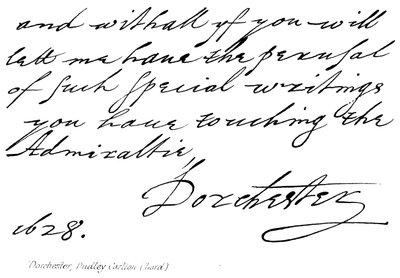 and withall yf you will
lett me haue the perusal
of such special writings
you haue touching the
Admiraltie,
Dorchester
1628.
Dorchester, Dudley Carlton (Lord)